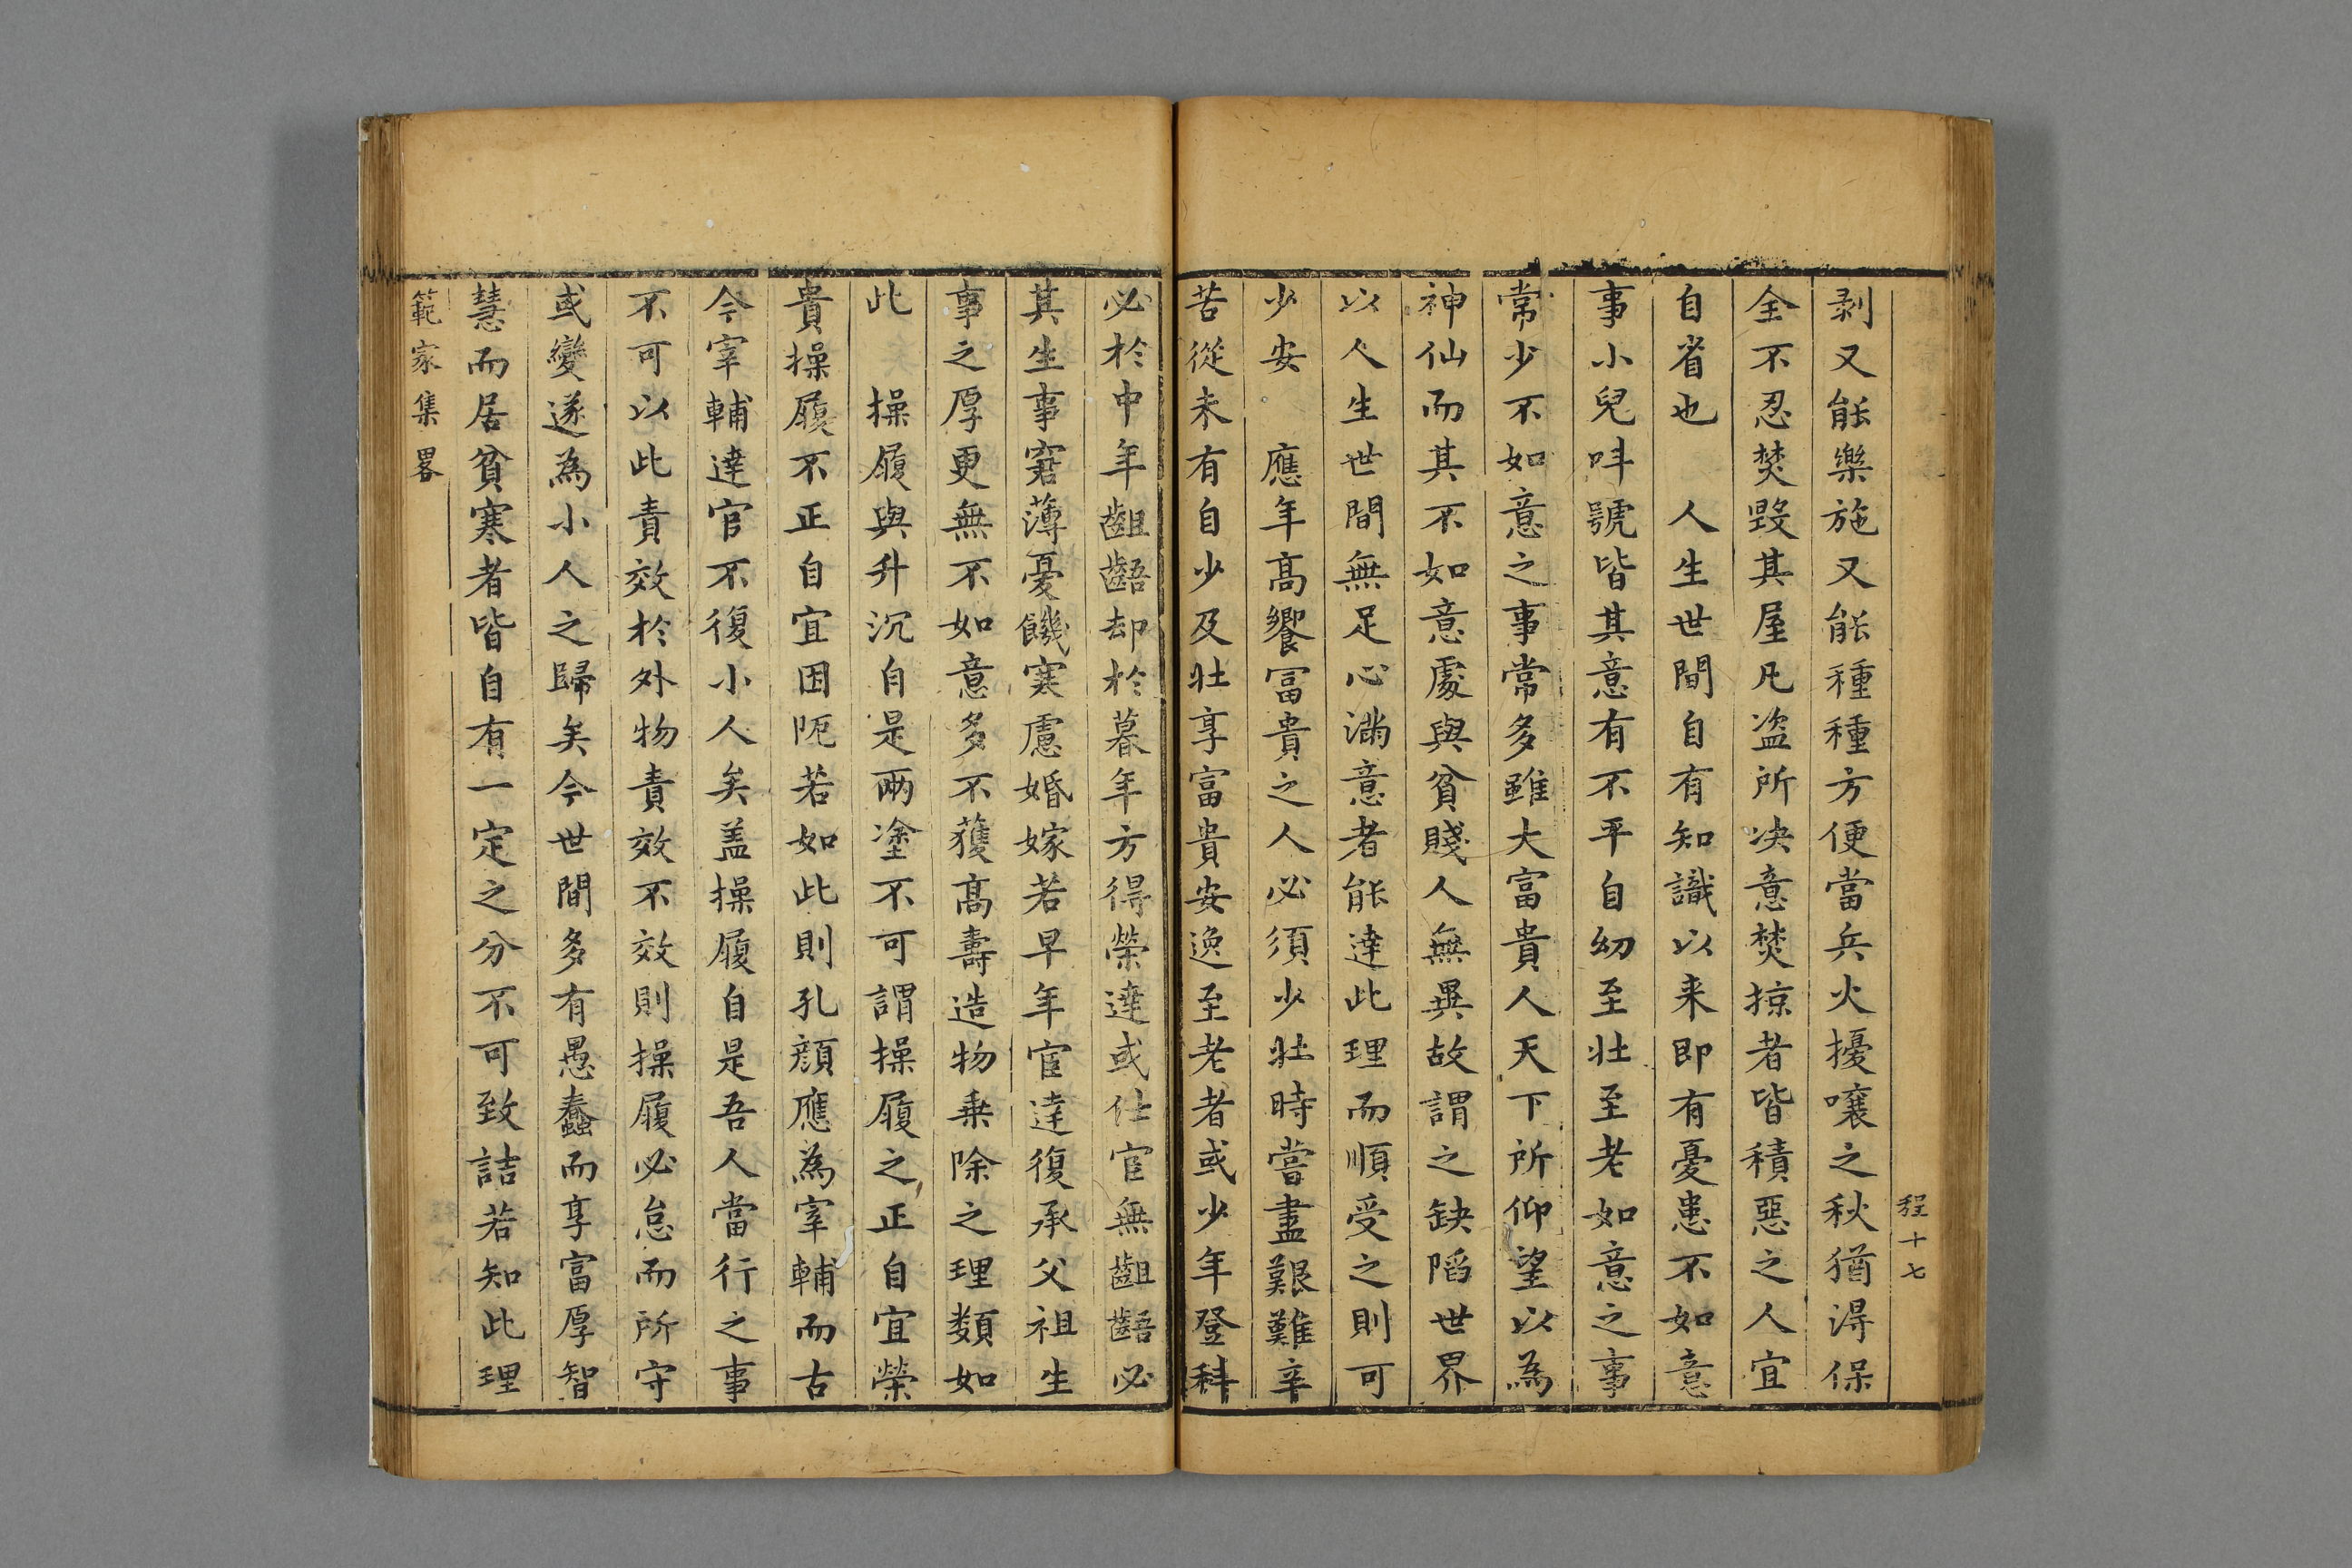 程十七
剥又能樂施又能種種方便當兵火擾嚷之秋猶得保
全不忍焚毀其屋凡盗所决意焚掠者皆積惡之人宜
自省也　人生世間自有知識以来即有憂患不如意
事小兒呌號皆其意有不平自幼至壯至老如意之事
常少不如意之事常多雖大富貴人天下所仰望以為
神仙而其不如意處與貧賤人無異故謂之缺陷世界
以人生世間無足心滿意者能達此理而順受之則可
少安　應年高饗冨貴之人必須少壯時嘗盡艱難辛
苦從未有自少及壯享富貴安逸至老者或少年登科
必於中年齟齬却於暮年方得榮達或仕宦無齟齬必
其生事窘薄憂饑寒慮婚嫁若早年宦達復承父祖生
事之厚更無不如意多不獲高壽造物乗除之理類如
此　操履與升沉自是兩塗不可謂操履之正自宜榮
貴操履不正自宜困阨若如此則孔顔應為宰輔而古
今宰輔達官不復小人矣盖操履自是吾人當行之事
不可以此責效於外物責效不效則操履必怠而所守
或變遂為小人之歸矣今世間多有愚蠢而享富厚智
慧而居貧寒者皆自有一定之分不可致詰若知此理
範家集畧